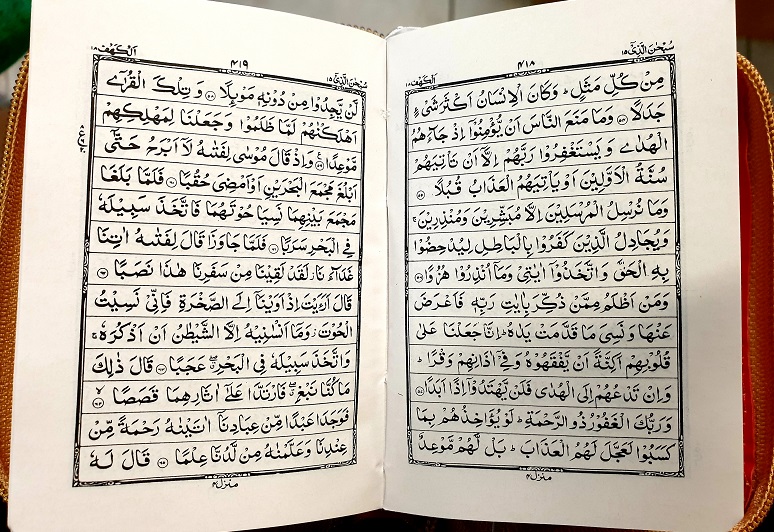 سُبْحٰنَ الَّذِىْ ١٥
٤١٨
اَلْكَهْف ١٨
مِنْ كُلِّ مَثَلٍ ؕ وَكَانَ الْاِنْسَانُ اَكْثَرَ شَىْءٍ
جَدَلًا ﴿٥٤﴾ وَمَا مَنَعَ النَّاسَ اَنْ يُّؤْمِنُوْۤا اِذْ جَآءَهُمُ
الْهُدٰى وَيَسْتَغْفِرُوْا رَبَّهُمْ اِلَّاۤ اَنْ تَاْتِيَهُمْ
سُنَّةُ الْاَوَّلِيْنَ اَوْ يَاْتِيَهُمُ الْعَذَابُ قُبُلًا ﴿٥٥﴾
وَمَا نُرْسِلُ الْمُرْسَلِيْنَ اِلَّا مُبَشِّرِيْنَ وَمُنْذِرِيْنَ ۚ
وَيُجَادِلُ الَّذِيْنَ كَفَرُوْا بِالْبَاطِلِ لِيُدْحِضُوْا
بِهِ الْحَقَّ وَاتَّخَذُوْۤا اٰيٰتِىْ وَمَاۤ اُنْذِرُوْا هُزُوًا ﴿٥٦﴾
وَمَنْ اَظْلَمُ مِمَّنْ ذُكِّرَ بِاٰيٰتِ رَبِّهٖ فَاَعْرَضَ
عَنْهَا وَنَسِىَ مَا قَدَّمَتْ يَدٰهُ ؕ اِنَّا جَعَلْنَا عَلٰى
قُلُوْبِهِمْ اَكِنَّةً اَنْ يَّفْقَهُوْهُ وَفِىْۤ اٰذَانِهِمْ وَقْرًا ؕ
وَاِنْ تَدْعُهُمْ اِلَى الْهُدٰى فَلَنْ يَّهْتَدُوْۤا اِذًا اَبَدًا ﴿٥٧﴾
وَرَبُّكَ الْغَفُوْرُ ذُو الرَّحْمَةِ ؕ لَوْ يُؤَاخِذُهُمْ بِمَا
كَسَبُوْا لَعَجَّلَ لَهُمُ الْعَذَابَ ؕ بَلْ لَّهُمْ مَّوْعِدٌ
منزل ٤
سُبْحٰنَ الَّذِىْ ١٥
٤١٩
اَلْكَهْف ١٨
لَّنْ يَّجِدُوْا مِنْ دُوْنِهٖ مَوْئِلًا ﴿٥٨﴾ وَتِلْكَ الْقُرٰٓى
اَهْلَكْنٰهُمْ لَمَّا ظَلَمُوْا وَجَعَلْنَا لِمَهْلِكِهِمْ
مَّوْعِدًا ﴿٥٩﴾ وَاِذْ قَالَ مُوْسٰى لِفَتٰىهُ لَاۤ اَبْرَحُ حَتّٰۤى
اَبْلُغَ مَجْمَعَ الْبَحْرَيْنِ اَوْ اَمْضِىَ حُقُبًا ﴿٦٠﴾ فَلَمَّا بَلَغَا
مَجْمَعَ بَيْنِهِمَا نَسِيَا حُوْتَهُمَا فَاتَّخَذَ سَبِيْلَهٗ
فِى الْبَحْرِ سَرَبًا ﴿٦١﴾ فَلَمَّا جَاوَزَا قَالَ لِفَتٰىهُ اٰتِنَا
غَدَآءَنَا لَقَدْ لَقِيْنَا مِنْ سَفَرِنَا هٰذَا نَصَبًا ﴿٦٢﴾
قَالَ اَرَءَيْتَ اِذْ اَوَيْنَاۤ اِلَى الصَّخْرَةِ فَاِنِّىْ نَسِيْتُ
الْحُوْتَ وَمَاۤ اَنْسٰىنِيْهُ اِلَّا الشَّيْطٰنُ اَنْ اَذْكُرَهٗ ۚ
وَاتَّخَذَ سَبِيْلَهٗ فِى الْبَحْرِ عَجَبًا ﴿٦٣﴾ قَالَ ذٰلِكَ
مَا كُنَّا نَبْغِ فَارْتَدَّا عَلٰۤى اٰثَارِهِمَا قَصَصًا ﴿٦٤﴾
فَوَجَدَا عَبْدًا مِّنْ عِبَادِنَاۤ اٰتَيْنٰهُ رَحْمَةً مِّنْ
عِنْدِنَا وَعَلَّمْنٰهُ مِنْ لَّدُنَّا عِلْمًا ﴿٦٥﴾ قَالَ لَهٗ
منزل ٤